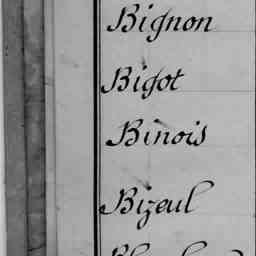 Bignon
Bigot
Binois
Bizeul